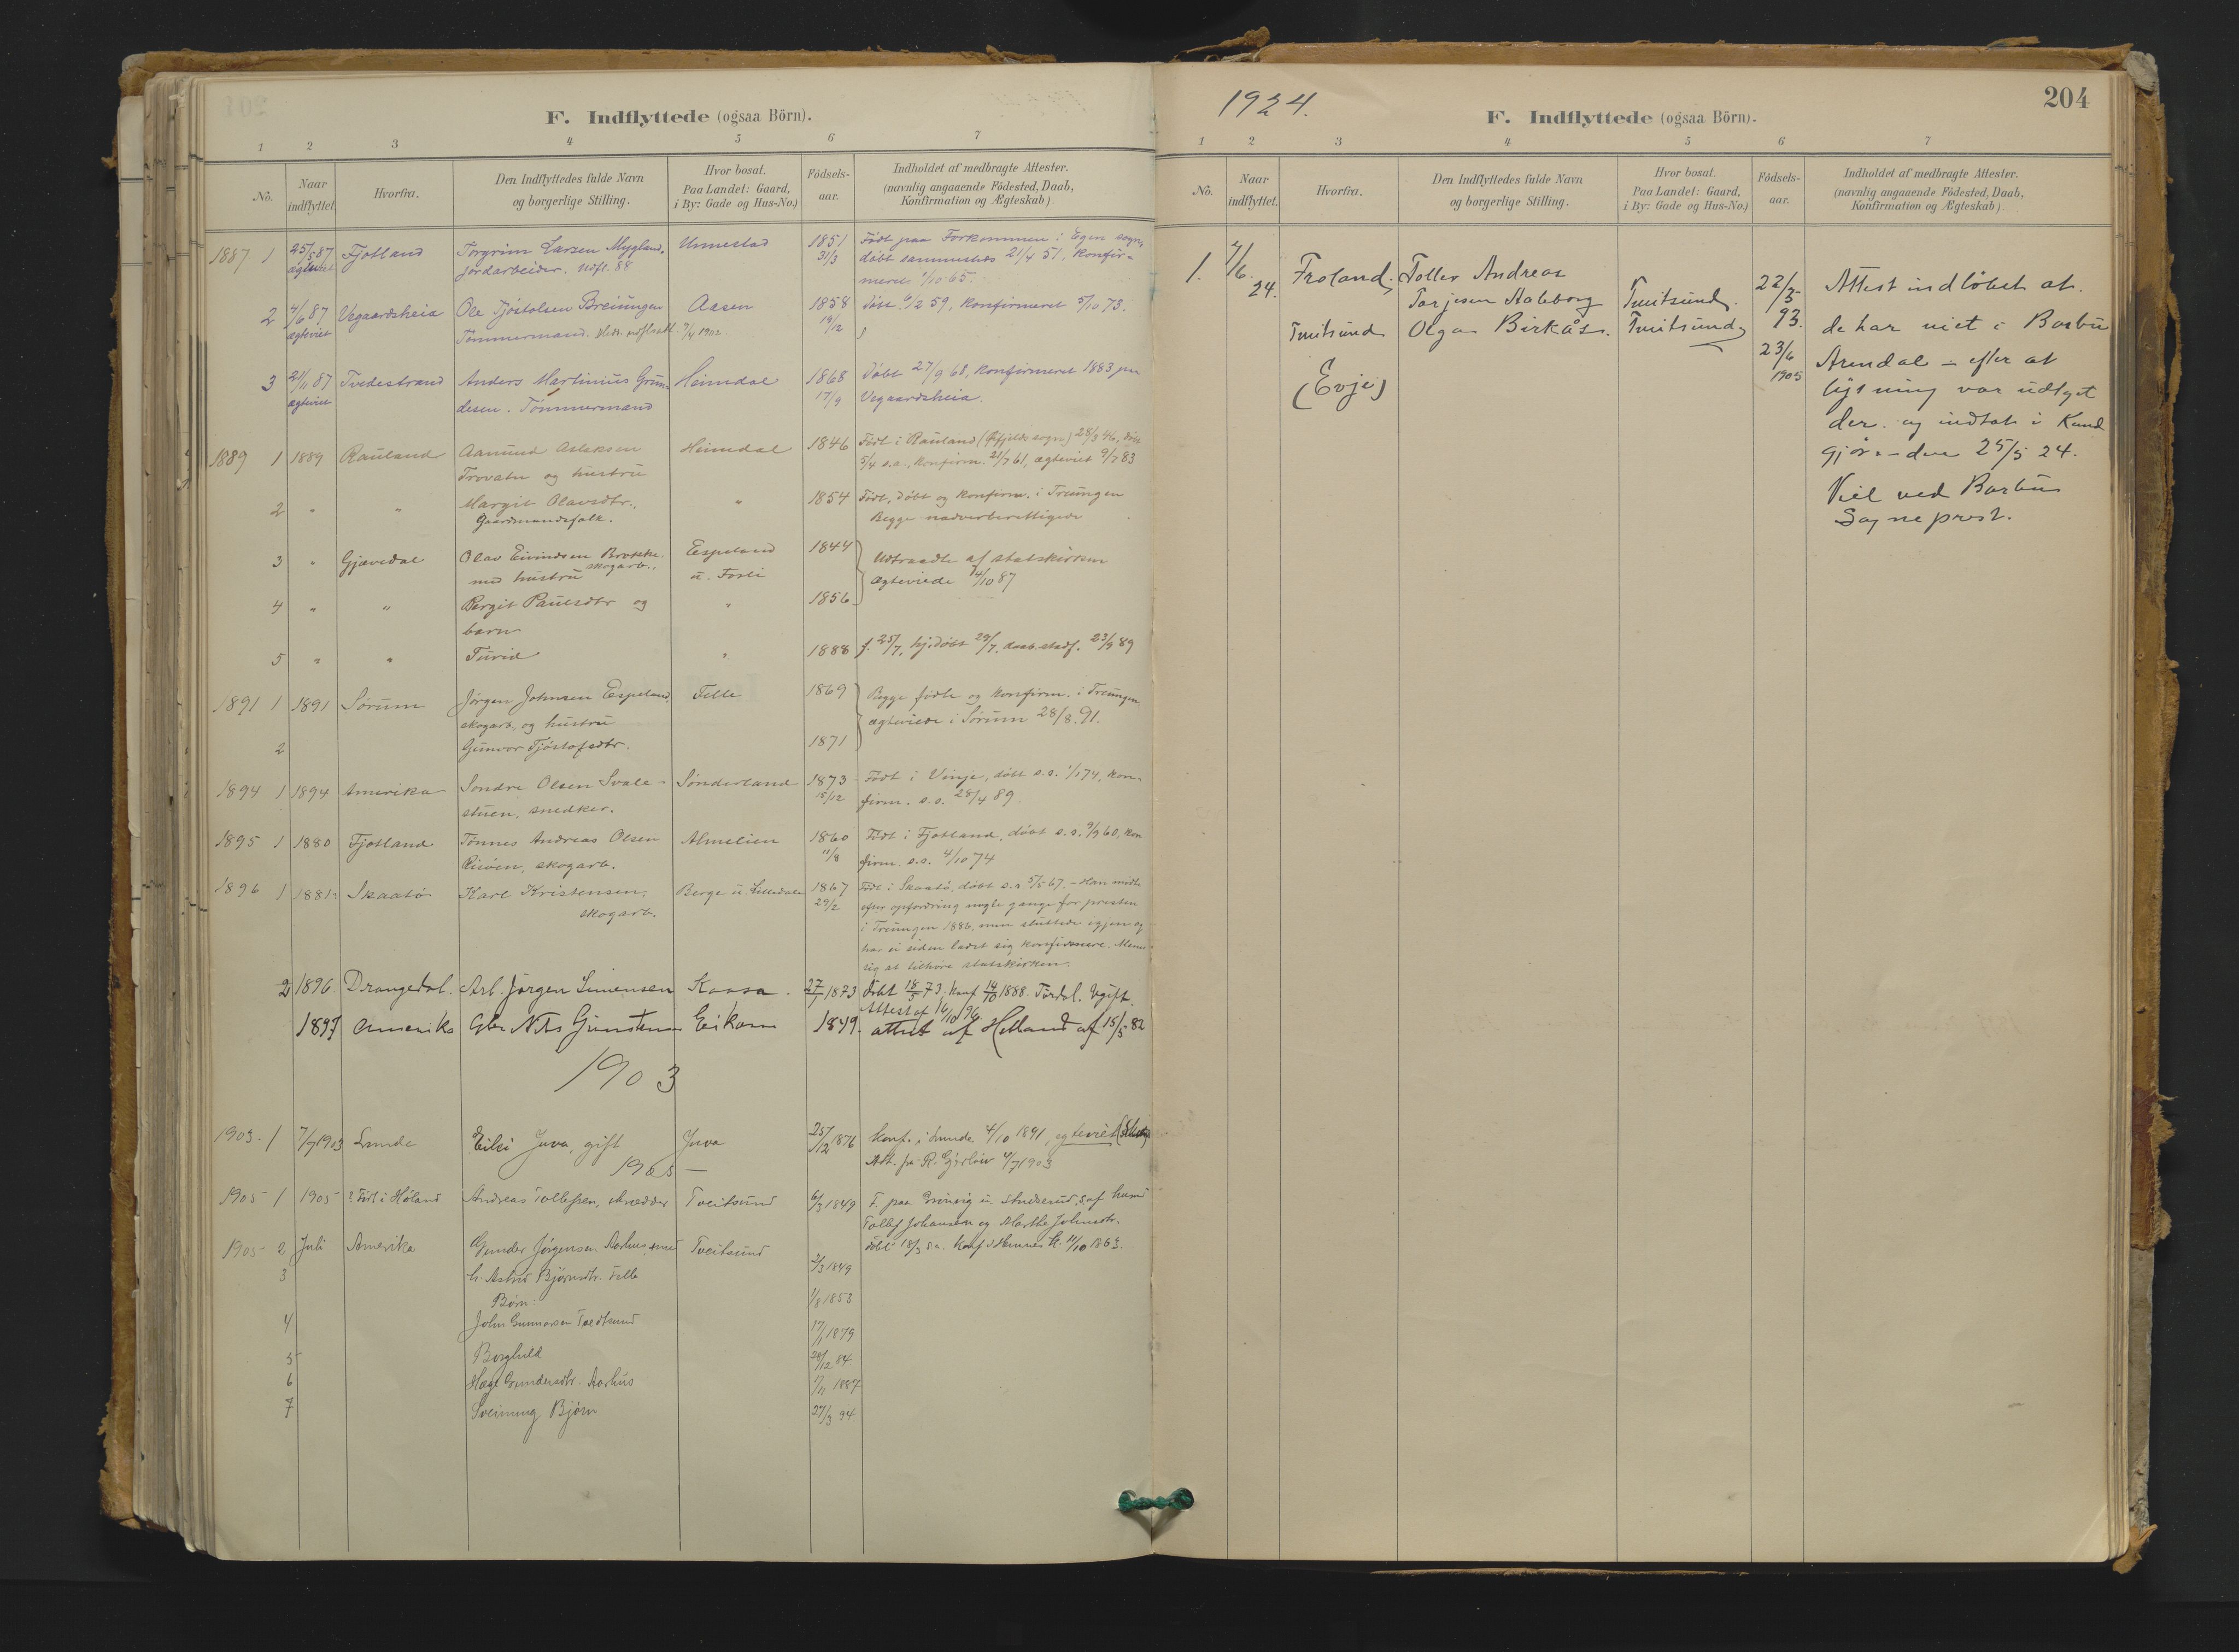 F. Indflyttede (ogsaa Börn).
1 2 3 4 5 6 7
No. Naar indflyttet. Hvorfra. Den Indflyttedes fulde Navn og borgerlige Stilling. Hvor bosat. Paa Landet: Gaard, i By: Gade og Hus-No.) Födsels-aar. Indholdet af medbragte Attester. (navnlig angaaende Födested, Daab, Konfirmation og Ægteskab)
1887 1 25/5 87 Fjotland Torgrim Larsen Mygland. Unnestad 1851 Födt paa Forkommen i Egen sogn,
ægteviet jordarbeider. Udfl. 88 31/3 döbt sammesteds 21/4 51, konfir-
meret 1/10 65.
2 7/6 87 Vegaardsheia Ole Tjöstolsen Breiungen Aasen 1858 döbt 6/2 59, konfirmeret 5/10 73.
ægteviet Tömmermand. 7/4 1902. 19/12
3 21/11 87 Tvedestrand Anders Martinius Grun- Heimdal 1868 Döbt 27/9 68, konfirmeret 1883 paa
ægteviet desen. Tömmermand 17/9 Vegaardsheia.
1889 1 1889 Rauland Aamund Aslaksen Heimdal 1846 Födt i Rauland (Öifjelds sogn) 28/3 46, döbt
Trovatn og hustru 5/4 s.a., konfirm. 21/7 61, ægteviet 9/7 83
2 " " Margit Olavsdtr. " 1854 Födt, döbt og konfirm. i Treungen
Gaardmandsfolk. Begge nadverberettigede
3 " Gjövdal Olav Eivindsen Brokke Espeland 1844 Udtraadte af statskirken
med hustru skogarb. u. Fosli ægteviede 4/10 87
4 " " Bergit Paulsdtr og " 1856
barn
5 " " Turid " 1888 f. 25/7, hj.döbt 29/7, daab.stadf. 23/9 89
1891 1 1891 Sörum Jörgen Johnsen Espeland, Felle 1869 Begge födte og konfirm. i Treungen
skogarb. og hustru ægteviede i Sörum 28/8.91.
2 Gunvor Tjöstofsdtr. 1871
1894 1 1894 Amerika Sondre Olsen Svale- Sönderland 1873 Födt i Vinje, döbt s.s. 1/1 74, kon-
stuen, snedker. 15/12 firm. s.s. 28/4 89.
1895 1 1880 Fjotland Tönnes Andreas Olsen Almelien 1860 Födt i Fjotland, döbt s.s. 9/9 60, kon
Risöen, skogarb. 11/8 firm. s.s. 4/10 74
1896 1 1881 Skaatö Karl Kristensen, Berge u. Lilledale 1867 Födt i Skaatö, döbt s.s. 5/5 67. – Han mödte
skogarb. 29/2 efter opfordring nogle gange for presten
i Treungen 1886, men sluttede igjen og
har ei siden ladet sig konfirmere. Mener
sig at tilhöre statskirken.
2 1896. Drangedal. Arb. Jörgen Simensen Kaasa. 27/1 1873 döbt 18/5 73. Konf 14/10 1888. Tördal. Ugift.
Attest af 16/10 96.
1897 Amerika Gbr Nils Gunstensen Eikaas 1849. attest af Hetland af 15/5 82
1903
1903. 1 7/7 1903 Lunde Eilei Juva, gift Juva 25/12 1876 Konf. i Lunde 4/10 1891, ægteviet
Att. fra R. Gjerlöw 4/7 1903
1905
1905 1 1905 ? Födt i Höland Andreas Tollefsen, skrædder Tveitsund 6/3 1849 F. paa Grinsig u. Anderud, s. af husm
Tollef Johansen og Marthe Johnsdtr.
döbt 18/3 s.a. Konf i Hemnes k. 11/10 1863.
1905 2 Juli Amerika Gunder Jörgensen Aarhus, smed Tveitsund 3/3 1849
3 h. Astrid Björnsdtr. Felle
Børn: 1/8 1853
4 John Gunnarsen Tveitsund 17/1 1879
5 Borghild 20/12 84
6 Hæge Gundersdtr. Aarhus 1/11 1887
7 Sveinung Björn 27/3 94
1924.
204
F. Indflyttede (ogsaa Börn).
1 2 3 4 5 6 7
No. Naar indflyttet. Hvorfra. Den Indflyttedes fulde Navn og borgerlige Stilling. Hvor bosat. Paa Landet: Gaard, i By: Gade og Hus-No.) Födsels-aar. Indholdet af medbragte Attester. (navnlig angaaende Födested, Daab, Konfirmation og Ægteskab)
1. 7/6 24. Froland. Tollev Andreas 22/5 Attest indlöbet at
Tarjesen Aaleborg Tveitsund. 93. de har viet i Barbu
Tveitsund Olga Birkås. Tveitsund 23/6 Arendal – efter at
(Evje) 1905 lysning var udlyst
der. og indtat i Kund
gjörenden 25/5 24.
Viet ved Barbu
Sogneprest.